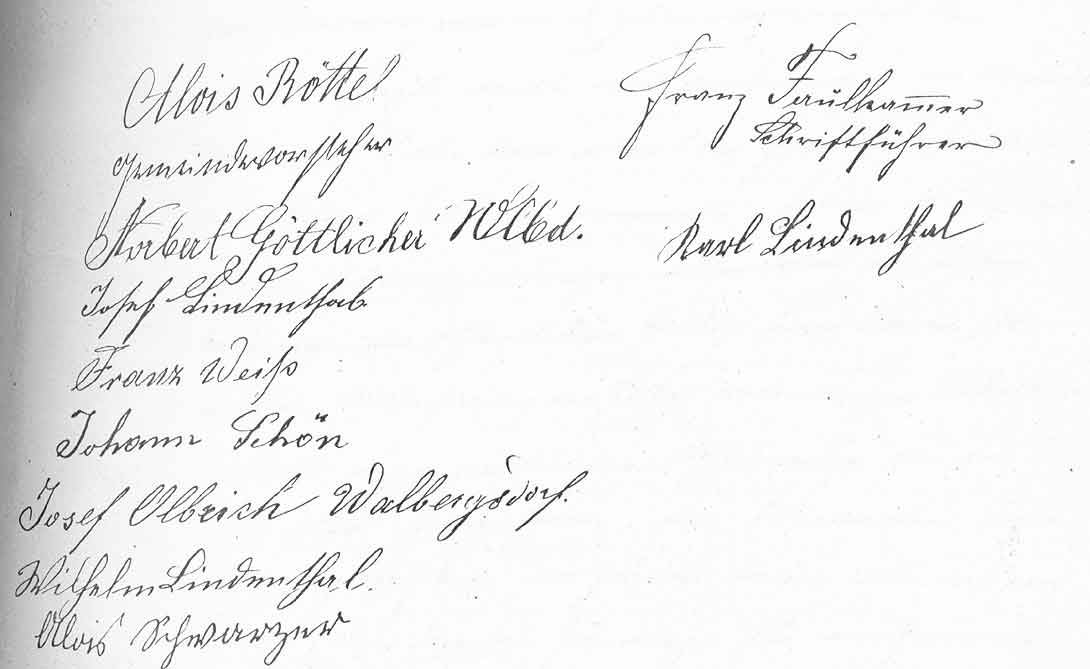 Alois Röttel
Gemeindevorsteher
Norbert Göttlicher Wlbd.
Josef Lindenthal
Franz Weiß
Johann Schön
Josef Olbrich Walbergsdorf.
Wilhelm Lindenthal.
Alois Schwarzer
Franz Faulhammer
Schriftführer
Karl Lindenthal